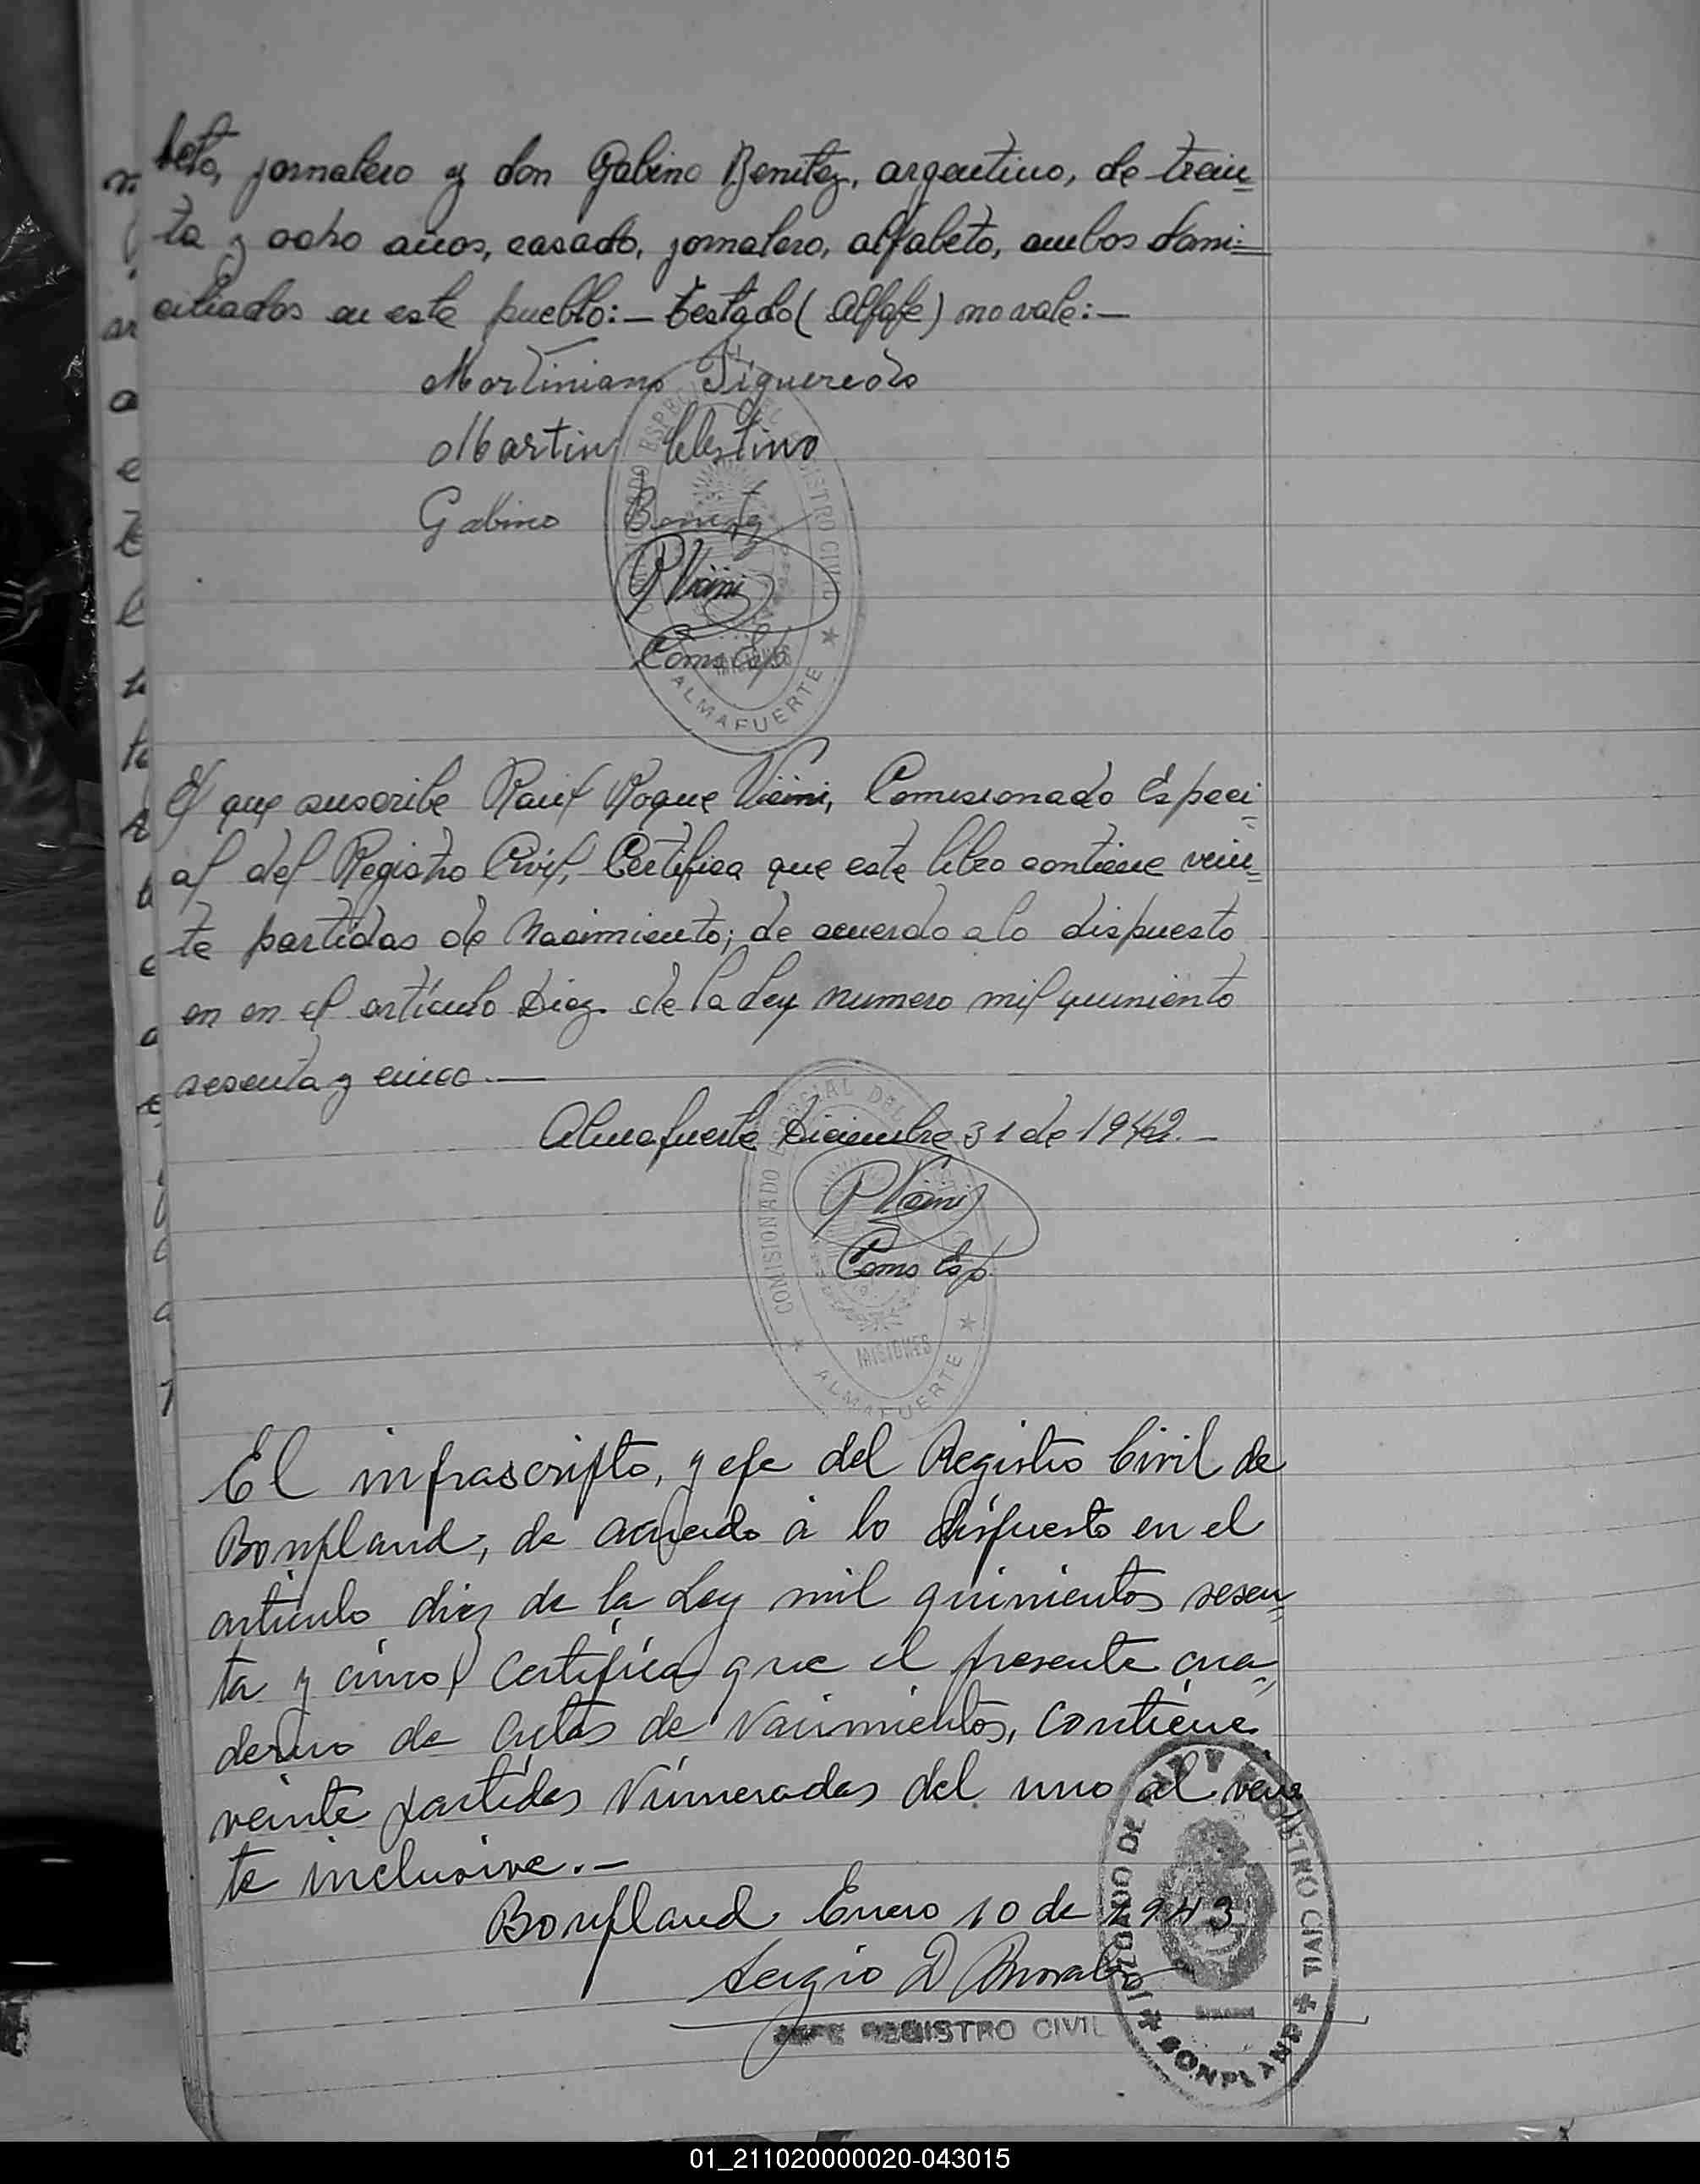 beto, jornalero y don Gabino Benitez, argentino, de trein=
ta y ocho años, casado, jornalero, alfabeto, ambos domi=
ciliados en este pueblo:— Testado (alfafe) no vale:—
Martiniano Figueredo
Martin Celestino
Gabino Benitez
Como Esp
COMISIONADO ESPECIAL DEL REGISTRO CIVIL
MISIONES
ALMAFUERTE
El que suscribe Raul Roque Vicini, Comisionado Especi=
al del Registro Civil, Certifica que este libro contiene vein=
te partidas de Nacimiento; de acuerdo a lo dispuesto
en en el artículo Diez de la Ley numero mil quiniento
sesenta y cinco.—
Almafuerte Diciembre 31 de 1942.—
Como Esp
COMISIONADO ESPECIAL DEL
MISIONES
ALMAFUERTE
El infrascripto, yefe del Registro Civil de
Bonpland, de acuerdo á lo dispuesto en el
articulo diez de la Ley mil quinientos sesen=
ta y cinco, Certifica que el presente cua=
derno de Actas de Nacimientos, contiene
veinte partidas Númeradas del uno al vein
te inclusive.—
Bonpland Enero 10 de 1943
Sergio D Morales
JEFE REGISTRO CIVIL
JUZGADO DE PAZ Y REGISTRO CIVIL
BONPLAND
01_211020000020-043015